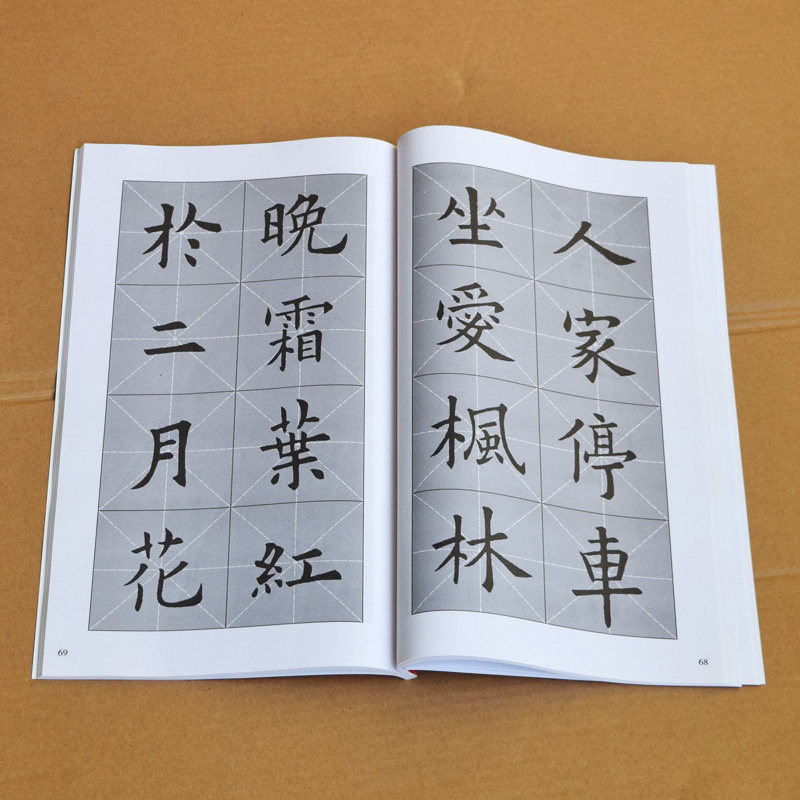 人家停車
坐愛楓林
晚霜葉紅
於二月花
68
69